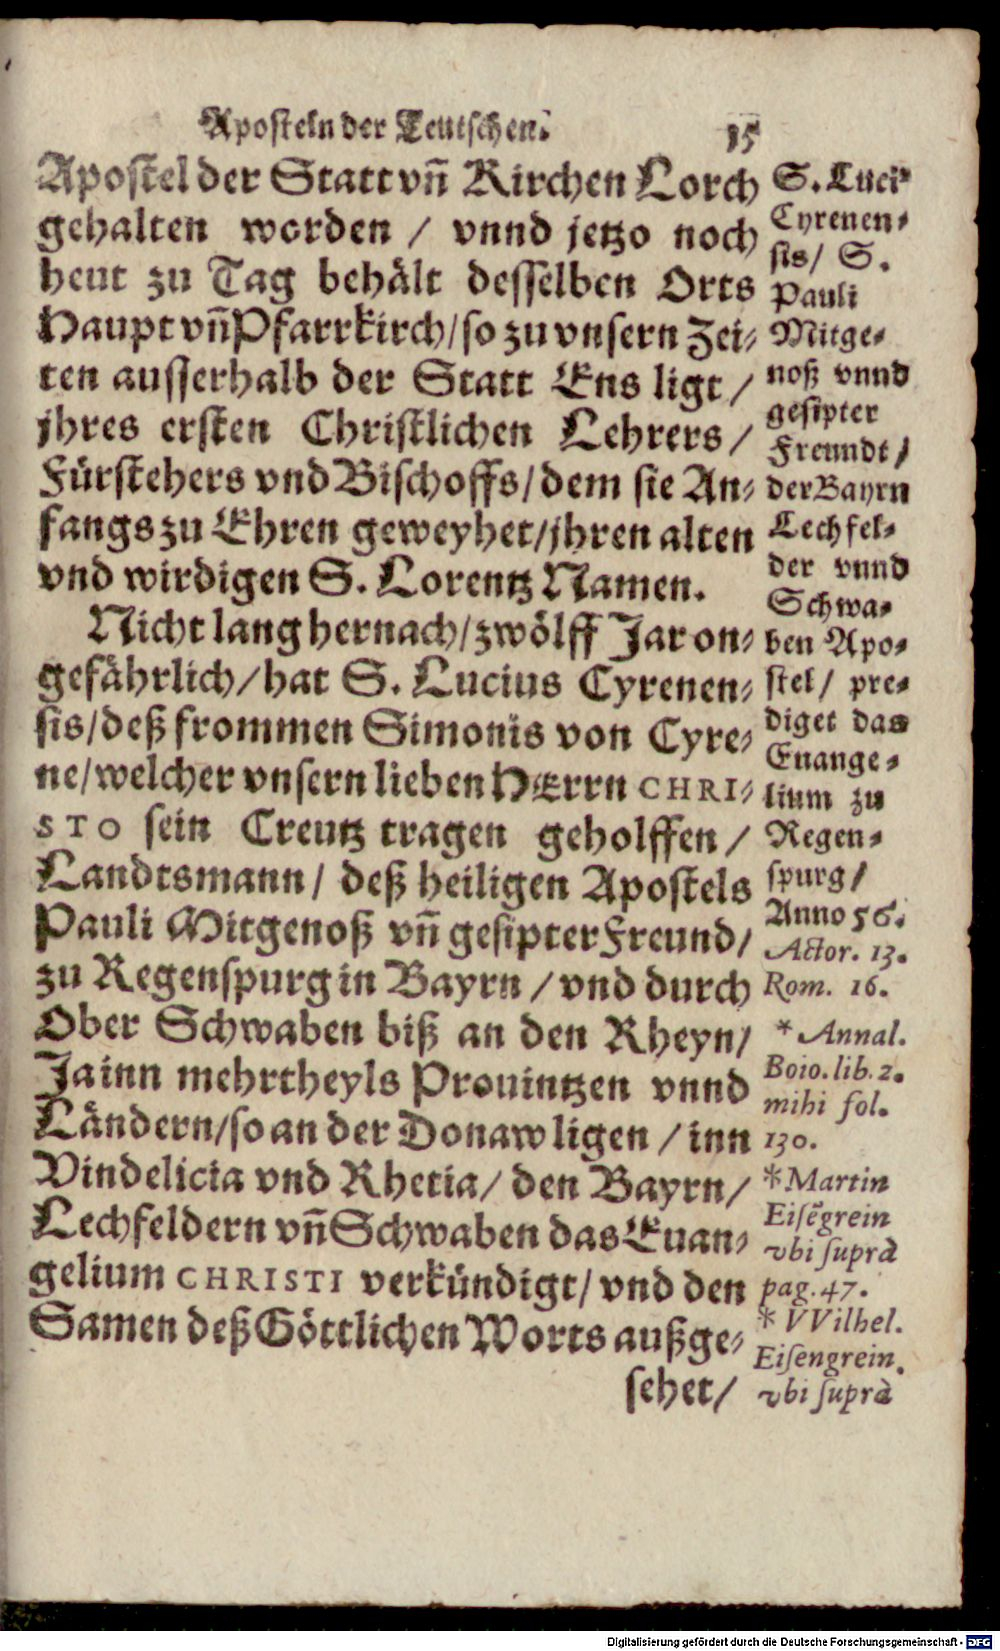 Aposteln der Teutschen. 15
Apostel der Statt vn̄ Kirchen Lorch
gehalten worden / vnnd jetzo noch
heut zu Tag behält desselben Orts
Haupt vn̄ Pfarrkirch/so zu vnsern Zei⸗
ten ausserhalb der Statt Ens ligt /
jhres ersten Christlichen Lehrers /
Fürstehers vnd Bischoffs/dem sie An⸗
fangs zu Ehren geweyhet/jhren alten
vnd wirdigen S. Lorentz Namen.
Nicht lang hernach/zwölff Jar on⸗
gefährlich/hat S. Lucius Cyrenen⸗
sis/deß frommen Simonis von Cyre⸗
ne/welcher vnsern lieben HErrn CHRI⸗
STO sein Creutz tragen geholffen /
Landtsmann / deß heiligen Apostels
Pauli Mitgenoß vn̄ gesipter Freund/
zu Regenspurg in Bayrn / vnd durch
Ober Schwaben biß an den Rheyn/
Ja inn mehrtheyls Prouintzen vnnd
Ländern/so an der Donaw ligen / inn
Vindelicia vnd Rhetia/ den Bayrn/
Lechfeldern vn̄ Schwaben das Euan⸗
gelium CHRISTI verkündigt/ vnd den
Samen deß Göttlichen Worts außge⸗
sehet/
S. Luci⸗
Cyrenen⸗
sis/ S.
Pauli
Mitge⸗
noß vnnd
gesipter
Freundt/
der Bayrn
Lechfel⸗
der vnnd
Schwa⸗
ben Apo⸗
stel/ pre⸗
diget das
Euange⸗
lium zu
Regen⸗
spurg/
Anno 56.
Actor. 13.
Rom. 16.
* Annal.
Boio. lib. 2.
mihi fol.
130.
* Martin
Eisēgrein
vbi suprà
pag. 47.
* VVilhel.
Eisengrein.
vbi suprà
Digitalisierung gefördert durch die Deutsche Forschungsgemeinschaft - DFG